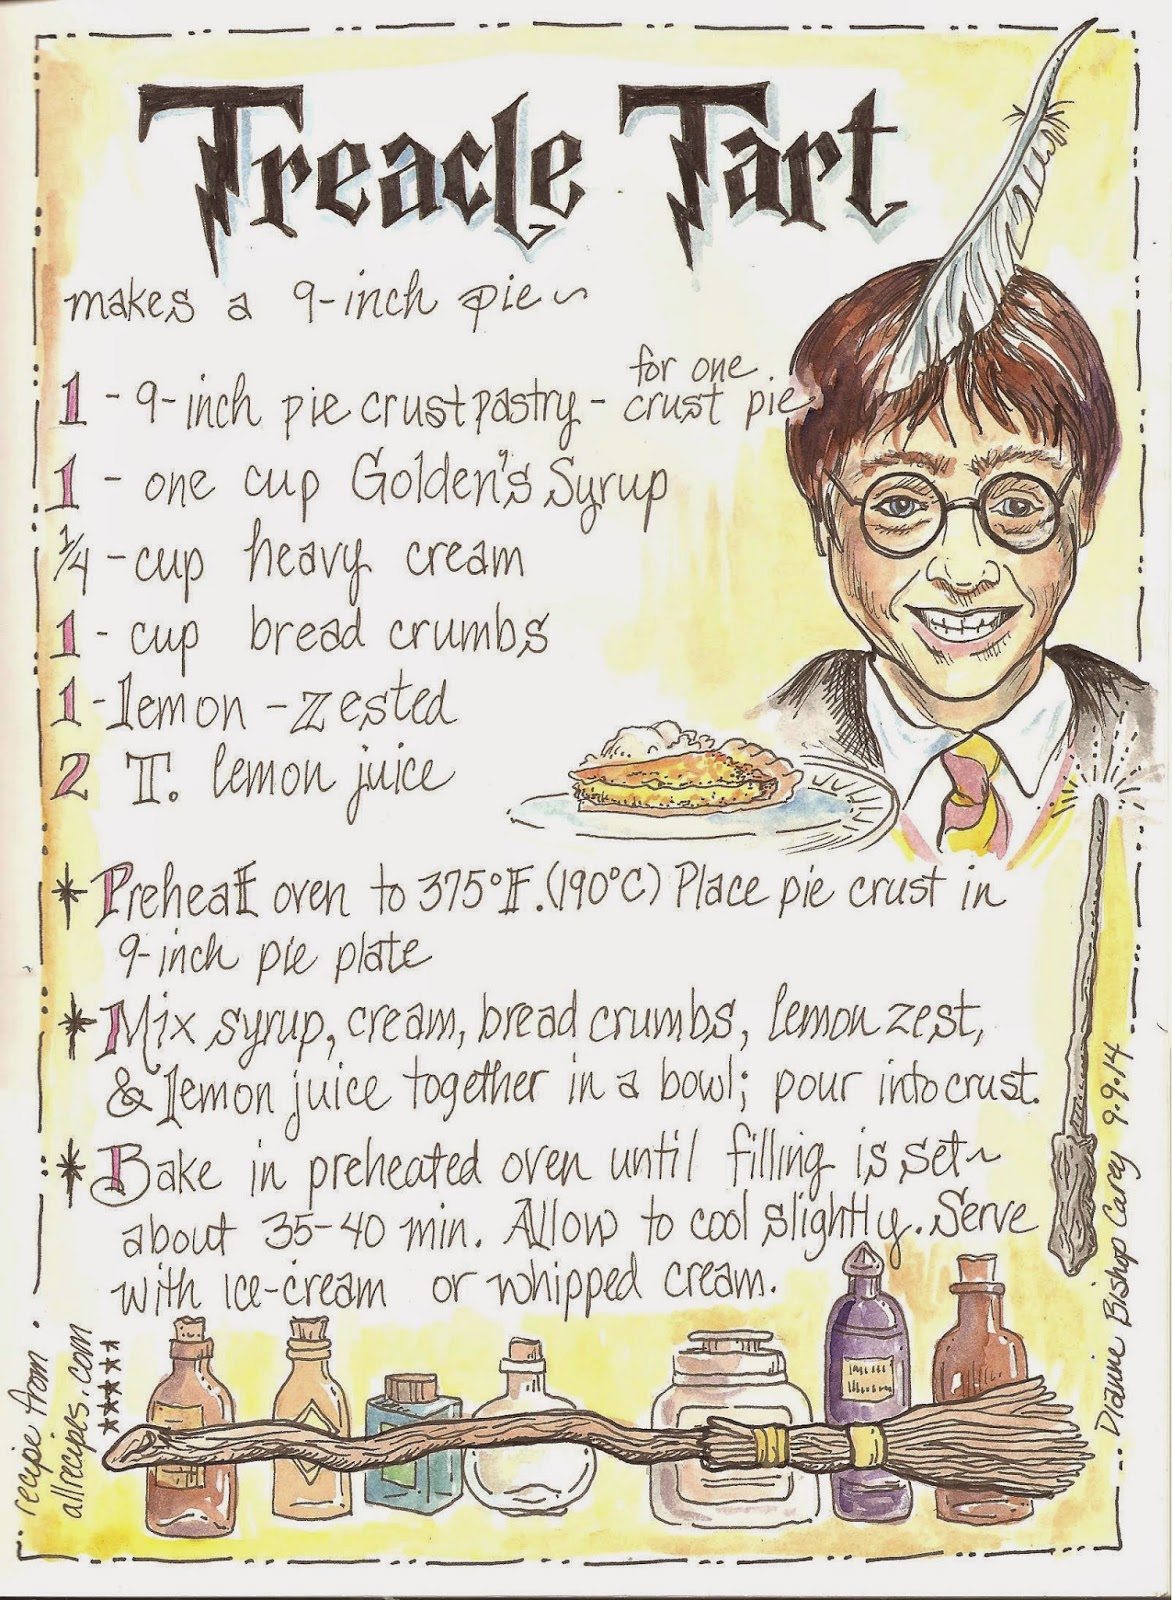 Treacle Tart
makes a 9-inch pie~
1 - 9-inch pie crust pastry - for one crust pie
1 - one cup Golden's Syrup
1/4 - cup heavy cream
1 - cup bread crumbs
1 - lemon - zested
2 T. lemon juice
* Preheat oven to 375°F. (190°C) Place pie crust in
9-inch pie plate
* Mix syrup, cream, bread crumbs, lemon zest,
& lemon juice together in a bowl; pour into crust.
* Bake in preheated oven until filling is set~
about 35-40 min. Allow to cool slightly. Serve
with ice-cream or whipped cream.
recipe from
allrecips.com
Dianne Bishop Carey 9.9.14